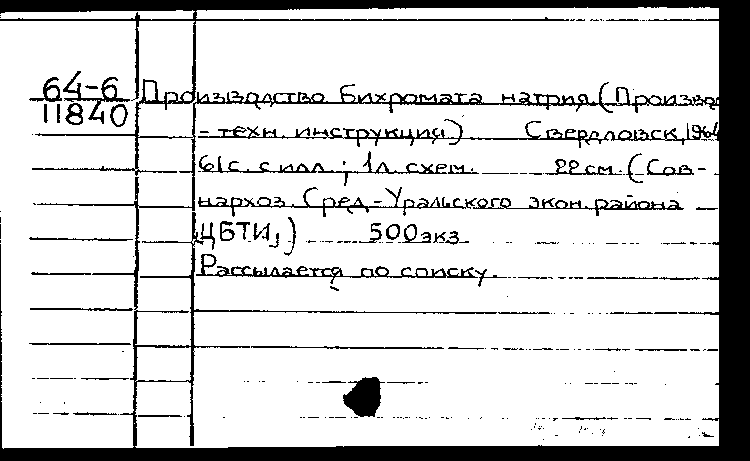 64-6
11840
Производство бихромата натрия. (Произво
-техн. инструкция) Свердловск, 1964
61с. с илл.; 1л. схем. 22см. (Сов-
нархоз. Сред.-Уральского экон. района
ЦБТИ,) 500экз.
Рассылается по списку.